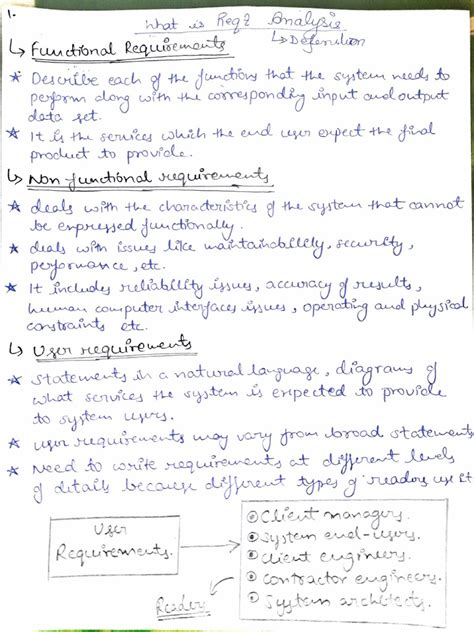 1.
What is Reqt Analysis
↳ Defenition
↳ Functional Requirements
★ Describe each of the functions that the system needs to
perform along with the corresponding input and output
data set.
★ It is the services which the end user expect the final
product to provide.
↳ Non functional requirements
★ deals with the characteristics of the system that cannot
be expressed functionally.
★ deals with issues like maintainability, security,
performance, etc.
★ It includes reliability issues, accuracy of results,
human computer interfaces issues, operating and physical
constraints etc.
↳ User requirements
★ Statements in a natural language, diagrams of
what services the system is expected to provide
to system users.
★ user requirements may vary from broad statements
★ Need to write requirements at different levels
of details because different types of readers use it
User
Requirements.
① Client managers.
② System end-users.
③ Client engineers.
④ contractor engineers.
⑤ System architects.
Readers